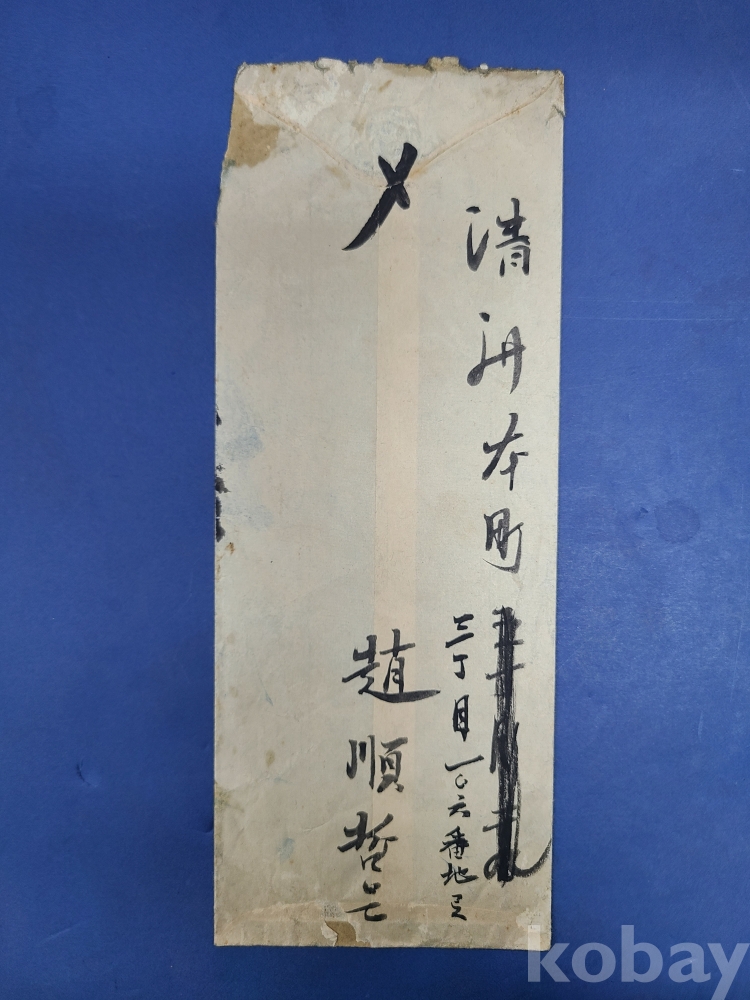 清津本町
三丁目一〇六番地
〆 趙順哲
kobay